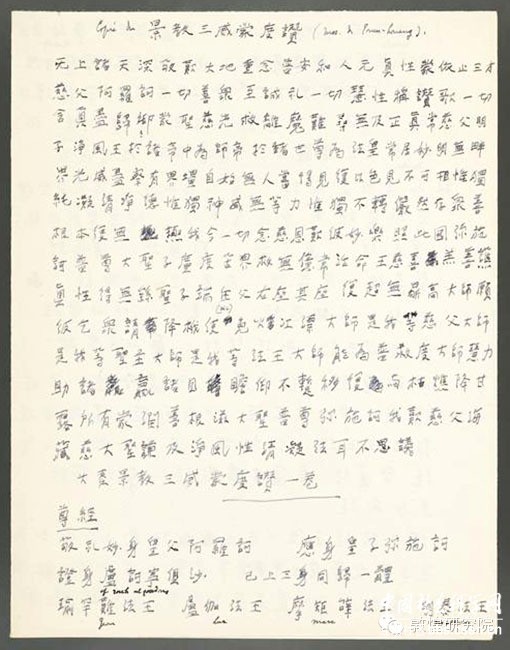 Copie du 景教三威蒙度讚 (mss. de Touen-houang).
无上諸天深敬歎大地重念普安和人元真性蒙依止三才
慈父阿羅訶一切善衆至誠礼一切慧性稱讚歌一切
含真盡歸仰蒙聖慈光救離魔難尋無及正真常慈父明
子淨風王於諸帝中為師帝於諸世尊為法皇常居妙明無畔
界光威盡察有界壃自始無人嘗得見復以色見不可相惟獨
純凝清淨德惟獨神威無等力惟獨不轉儼然存衆善
根本復無極我今一切念慈恩歎彼妙樂照此國弥施
訶普尊大聖子廣度苦界救無億常活命王慈喜羔普躭
真性得無繇聖子端任父右座其座復超無鼎高大師願
彼乞衆請降栰使免火江漂大師是我等慈父大師
是我等聖主大師是我等法王大師能為普救度大師慧力
助諸羸諸目瞻仰不蹔移復与枯燋降甘
露所有蒙潤善根滋大聖普尊弥施訶我歎慈父海
藏慈大聖謙及淨風性清凝法耳不思議
大秦景教三威蒙度讚一卷
尊經
敬礼妙身皇父阿羅訶 應身皇子弥施訶
證身盧訶寧俱沙 已上三身同歸一體
瑜罕難法王 盧伽法王 摩矩辭法王 明泰法王
Luc Marc
敦煌研究院